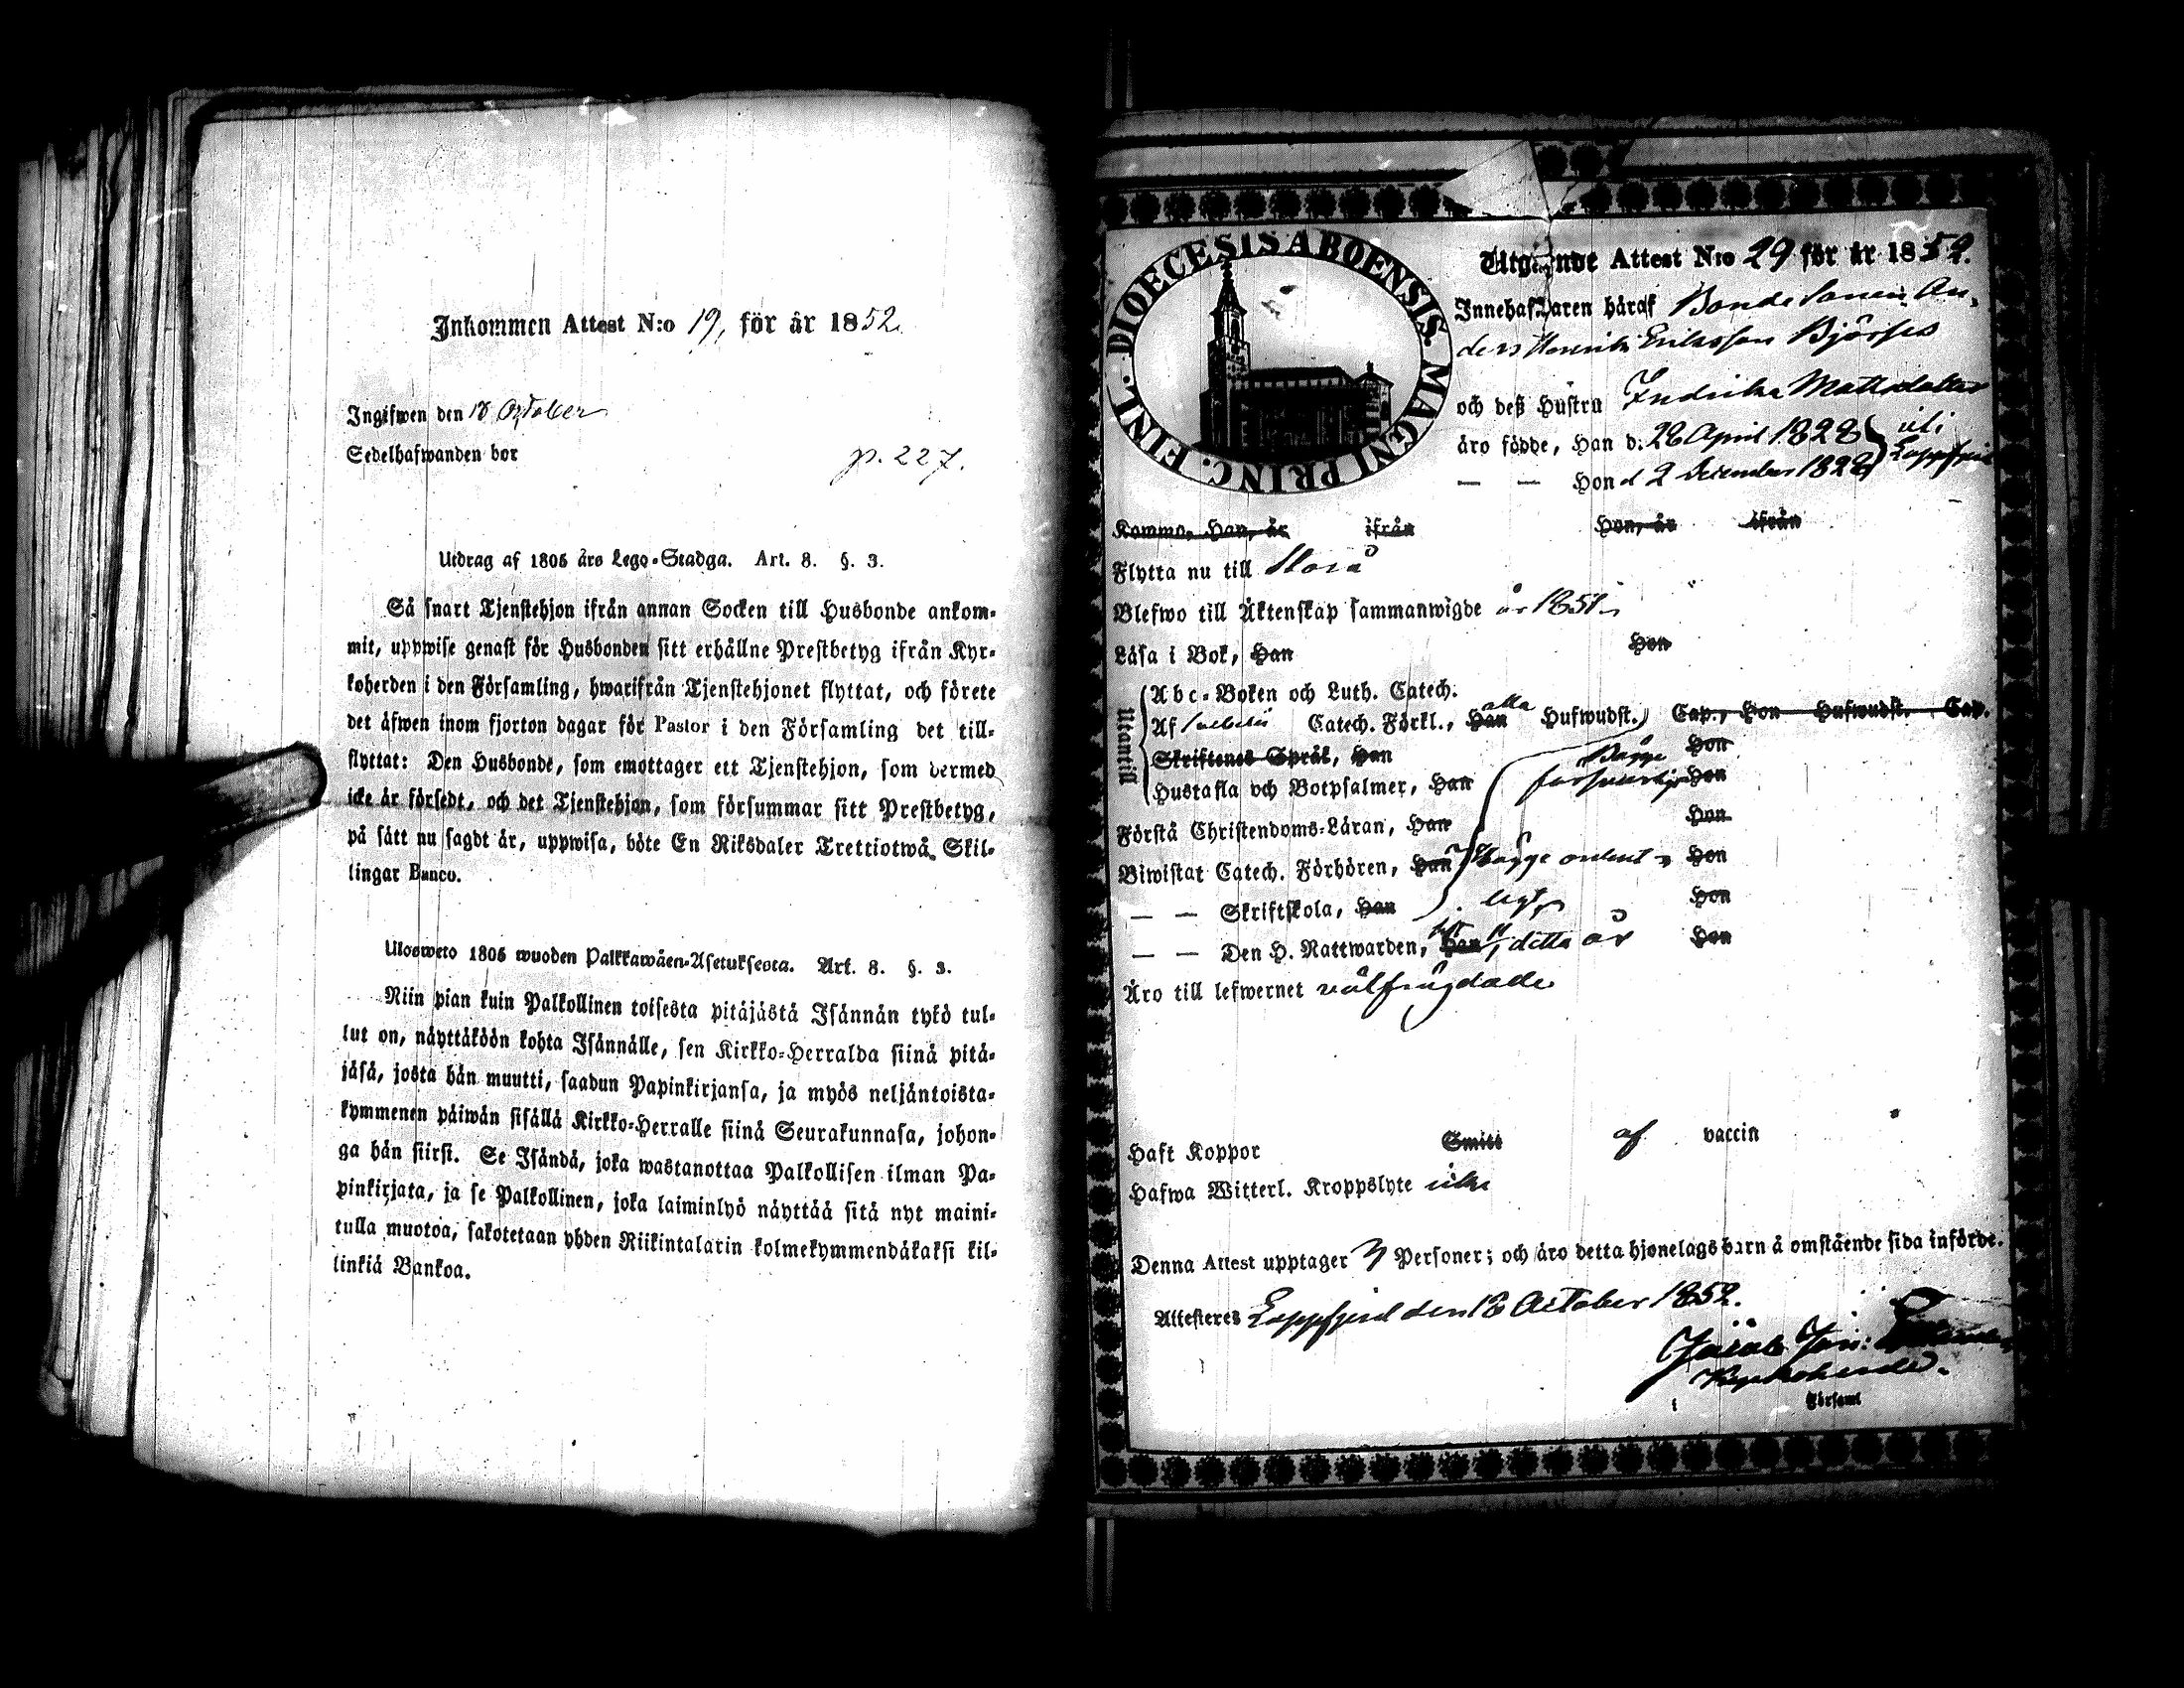 Inkommen Attest N:o 19, för år 1852.
Ingifwen den 18 October
Sedelhafwanden bor p. 227.
Utdrag af 1805 års Lego-Stadga. Art. 8. §. 3.
Så snart Tjenstehjon ifrån annan Socken till Husbonde ankom-
mit, uppwise genast för Husbonden sitt erhållne Prestbetyg ifrån Kyr-
koherden i den Församling, hwarifrån Tjenstehjonet flyttat, och förete
det äfwen inom fjorton dagar för Pastor i den Församling det till-
flyttat: Den Husbonde, som emottager ett Tjenstehjon, som dermed
icke är försedt, och det Tjenstehjon, som försummar sitt Prestbetyg,
på sätt nu sagdt är, uppwisa, böte En Riksdaler Trettiotwå Skil-
lingar Banco.
Ulosweto 1805 wuoden Palkkawäen-Asetuksesta. Art. 8. §. 3.
Niin pian kuin Palkollinen toisesta pitäjästä Isännän tykö tul-
lut on, näyttäköön kohta Isännälle, sen Kirkko-Herralda siinä pitä-
jäsä, josta hän muutti, saadun Papinkirjansa, ja myös neljäntoista-
kymmenen päiwän sisällä Kirkko-Herralle siinä Seurakunnasa, johon-
ga hän siirsi. Se Isändä, joka wastanottaa Palkollisen ilman Pa-
pinkirjata, ja se Palkollinen, joka laiminlyö näyttää sitä nyt maini-
tulla muotoa, sakotetaan yhden Riikintalarin kolmekymmendäkaksi kil-
linkiä Bankoa.
DIOECESIS ABOENSIS. MAGNI PRINC. FINL.
Utgående Attest N:o 29 för år 1852.
Innehafwaren häraf Bonde Sonen An-
ders Henrik Eriksson Björses
och deß Hustru Fredrika Mattsdotter
äro födde, Han d. 28 April 1828 uti
— — Hon d 2 December 1828 Lappfjerd
Komma, Han, år ifrån Hon, år ifrån
Flytta nu till Storå
Blefwo till Äktenskap sammanwigde år 1851
Läsa i Bok, Han Hon
Utantill
Abc-Boken och Luth. Catech.
Af Svebelii Catech. Förkl., Han alla Hufwudst. Cap., Hon Hufwudst. Cap.
Skriftenes Språk, Han Hon
Hustafla och Botpsalmer, Han Bägge Hon
Förstå Christendoms-Läran, Han försvarligt Hon
Biwistat Catech. Förhören, Han Bägge ordent- Hon
— — Skriftskola, Han ligt Hon
— — Den H. Nattwarden, Han detta år Hon
Äro till lefwernet välfrägdade
Haft Koppor Smitt af vaccin
Hafwa Witterl. Kroppslyte icke
Denna Attest upptager 3 Personer; och äro detta hjonelags barn å omstående sida införde.
Attesteres Lappfjerd den 18 October 1852.
Jacob Joh:
Kyrkoherde.
i Församl